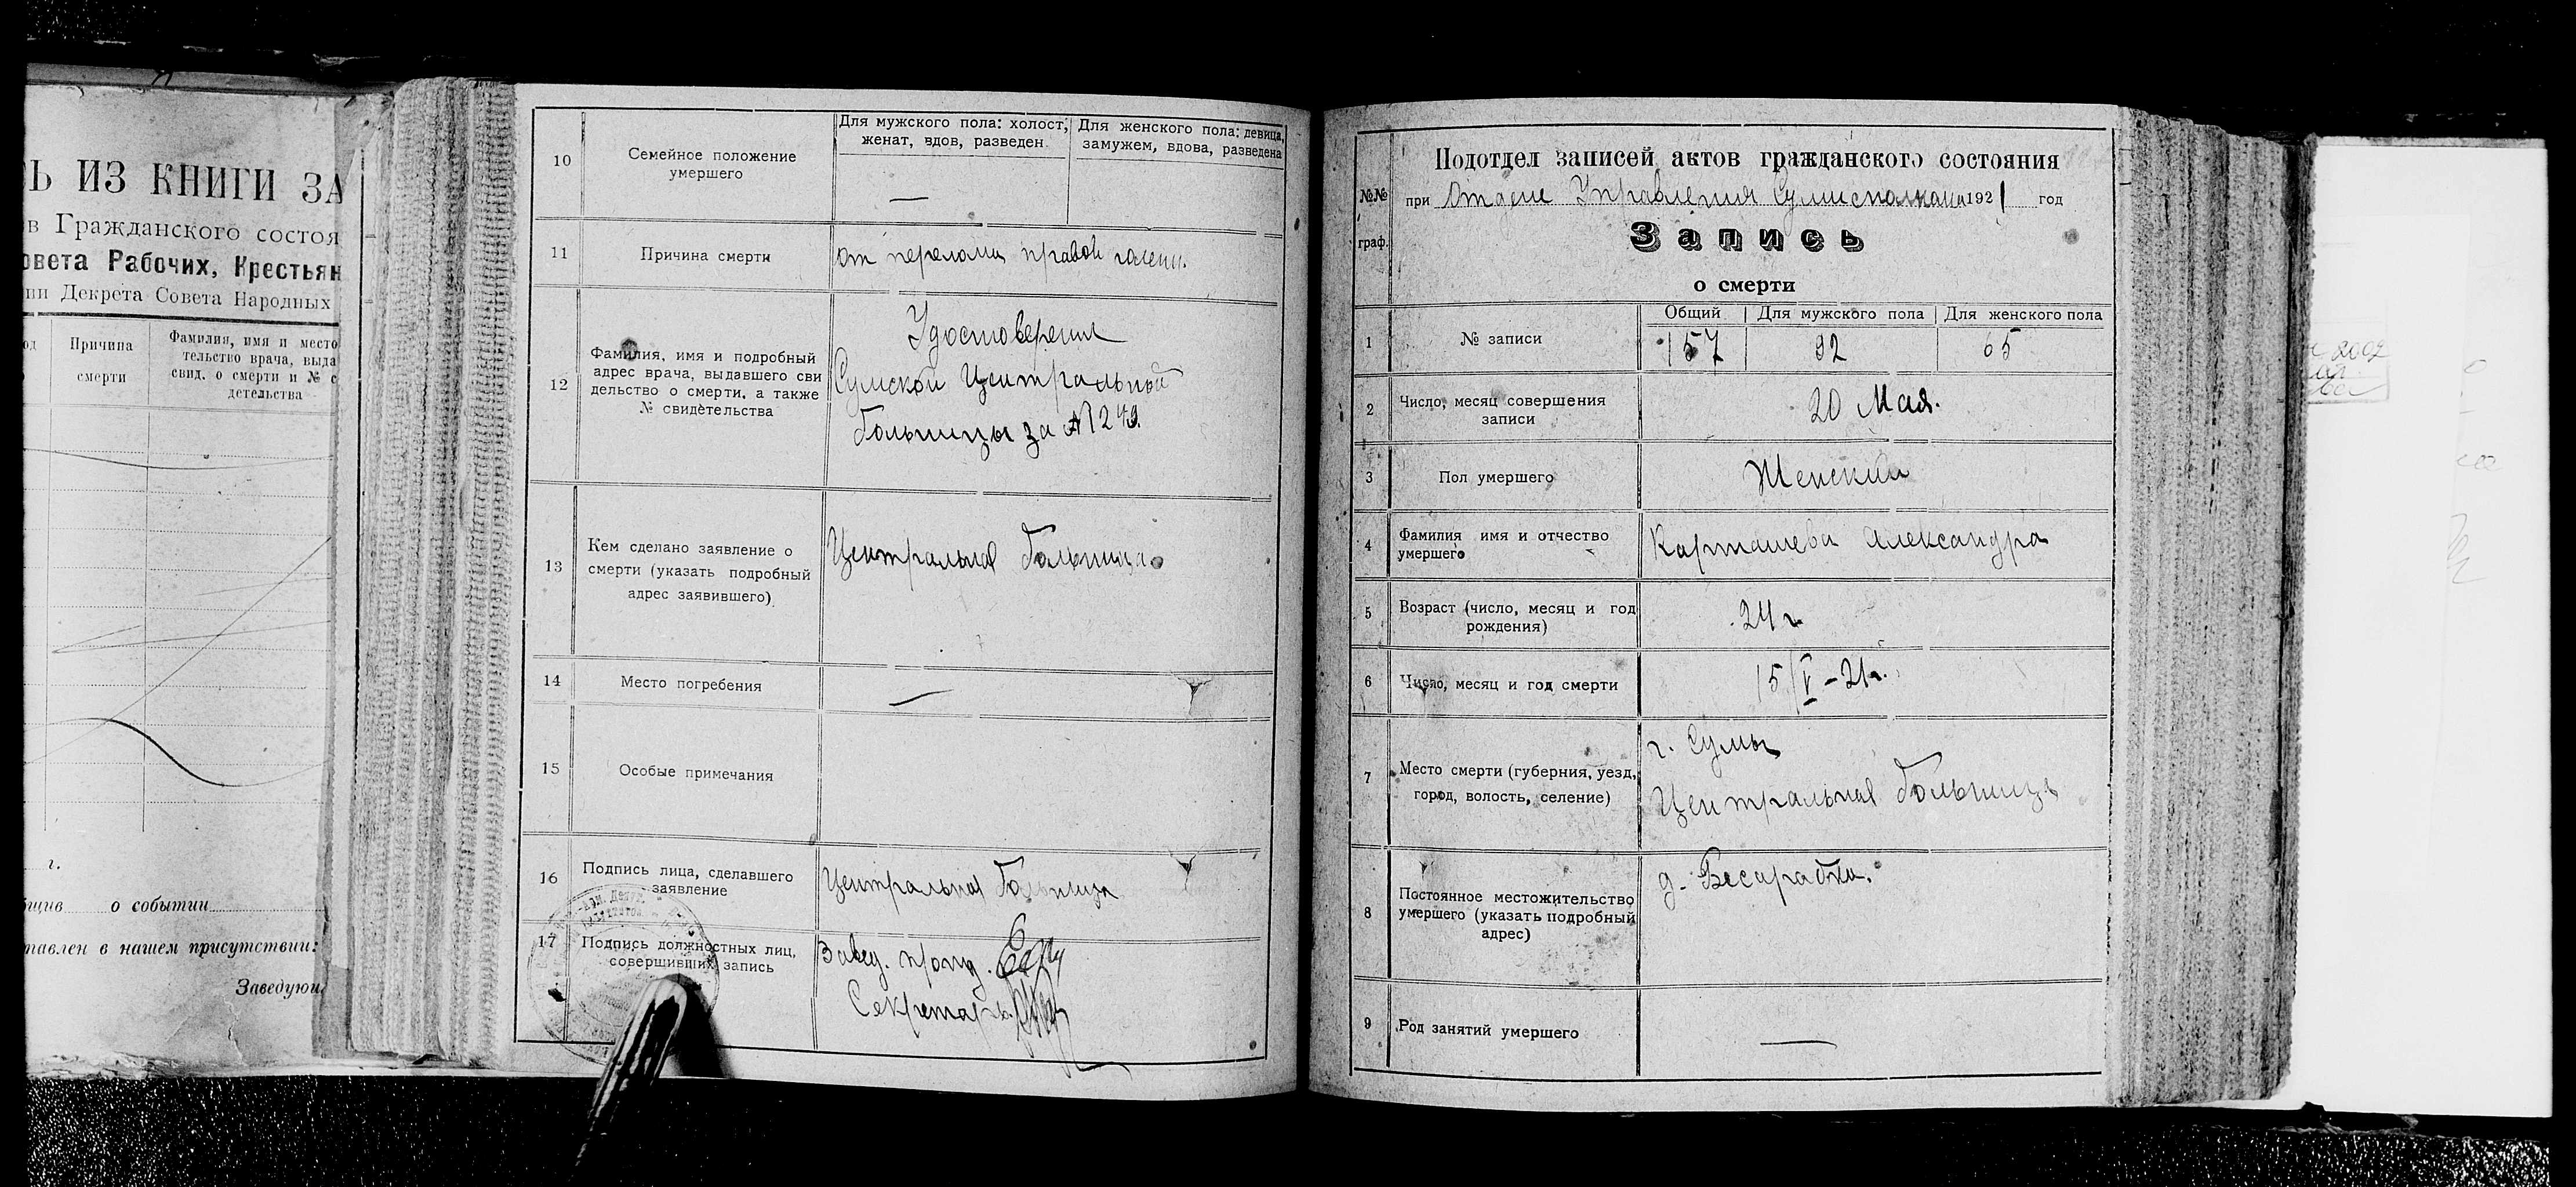 Ь ИЗ КНИГИ ЗА
в Гражданского состоя
овета Рабочих, Крестьян
ии Декрета Совета Народных
Причина
смерти
Фамилия, имя и место
тельство врача, выда
свид. о смерти и № с
детельства
г.
о событии
тавлен в нашем присутствии:
Заведуюш
10
Семейное положение
умершего
Для мужского пола: холост,
женат, вдов, разведен.
Для женского пола: девица,
замужем, вдова, разведена
—
11
Причина смерти
от перелома правой голени.
12
Фамилия, имя и подробный
адрес врача, выдавшего сви
дельство о смерти, а также
№ свидетельства
Удостоверения
Сумской Центральной
больницы за № 249.
13
Кем сделано заявление о
смерти (указать подробный
адрес заявившего)
Центральная больница
14
Место погребения
—
15
Особые примечания
16
Подпись лица, сделавшего
заявление
Центральная больница
17
Подпись должностных лиц,
совершивших запись
Завед. подд.
Секретарь
№№
граф.
Подотдел записей актов гражданского состояния
при Отделе Управления Сумисполкома 1921 год
Запись
о смерти
1
№ записи
Общий
Для мужского пола
Для женского пола
157
92
65
2
Число, месяц совершения
записи
20 Мая.
3
Пол умершего
Женский
4
Фамилия имя и отчество
умершего
Карташева Александра
5
Возраст (число, месяц и год
рождения)
24 г.
6
Число, месяц и год смерти
15/V – 21 г.
7
Место смерти (губерния, уезд,
город, волость, селение)
г. Сумы
Центральная больница
8
Постоянное местожительство
умершего (указать подробный
адрес)
д. Бесарабка.
9
Род занятий умершего
—
2002